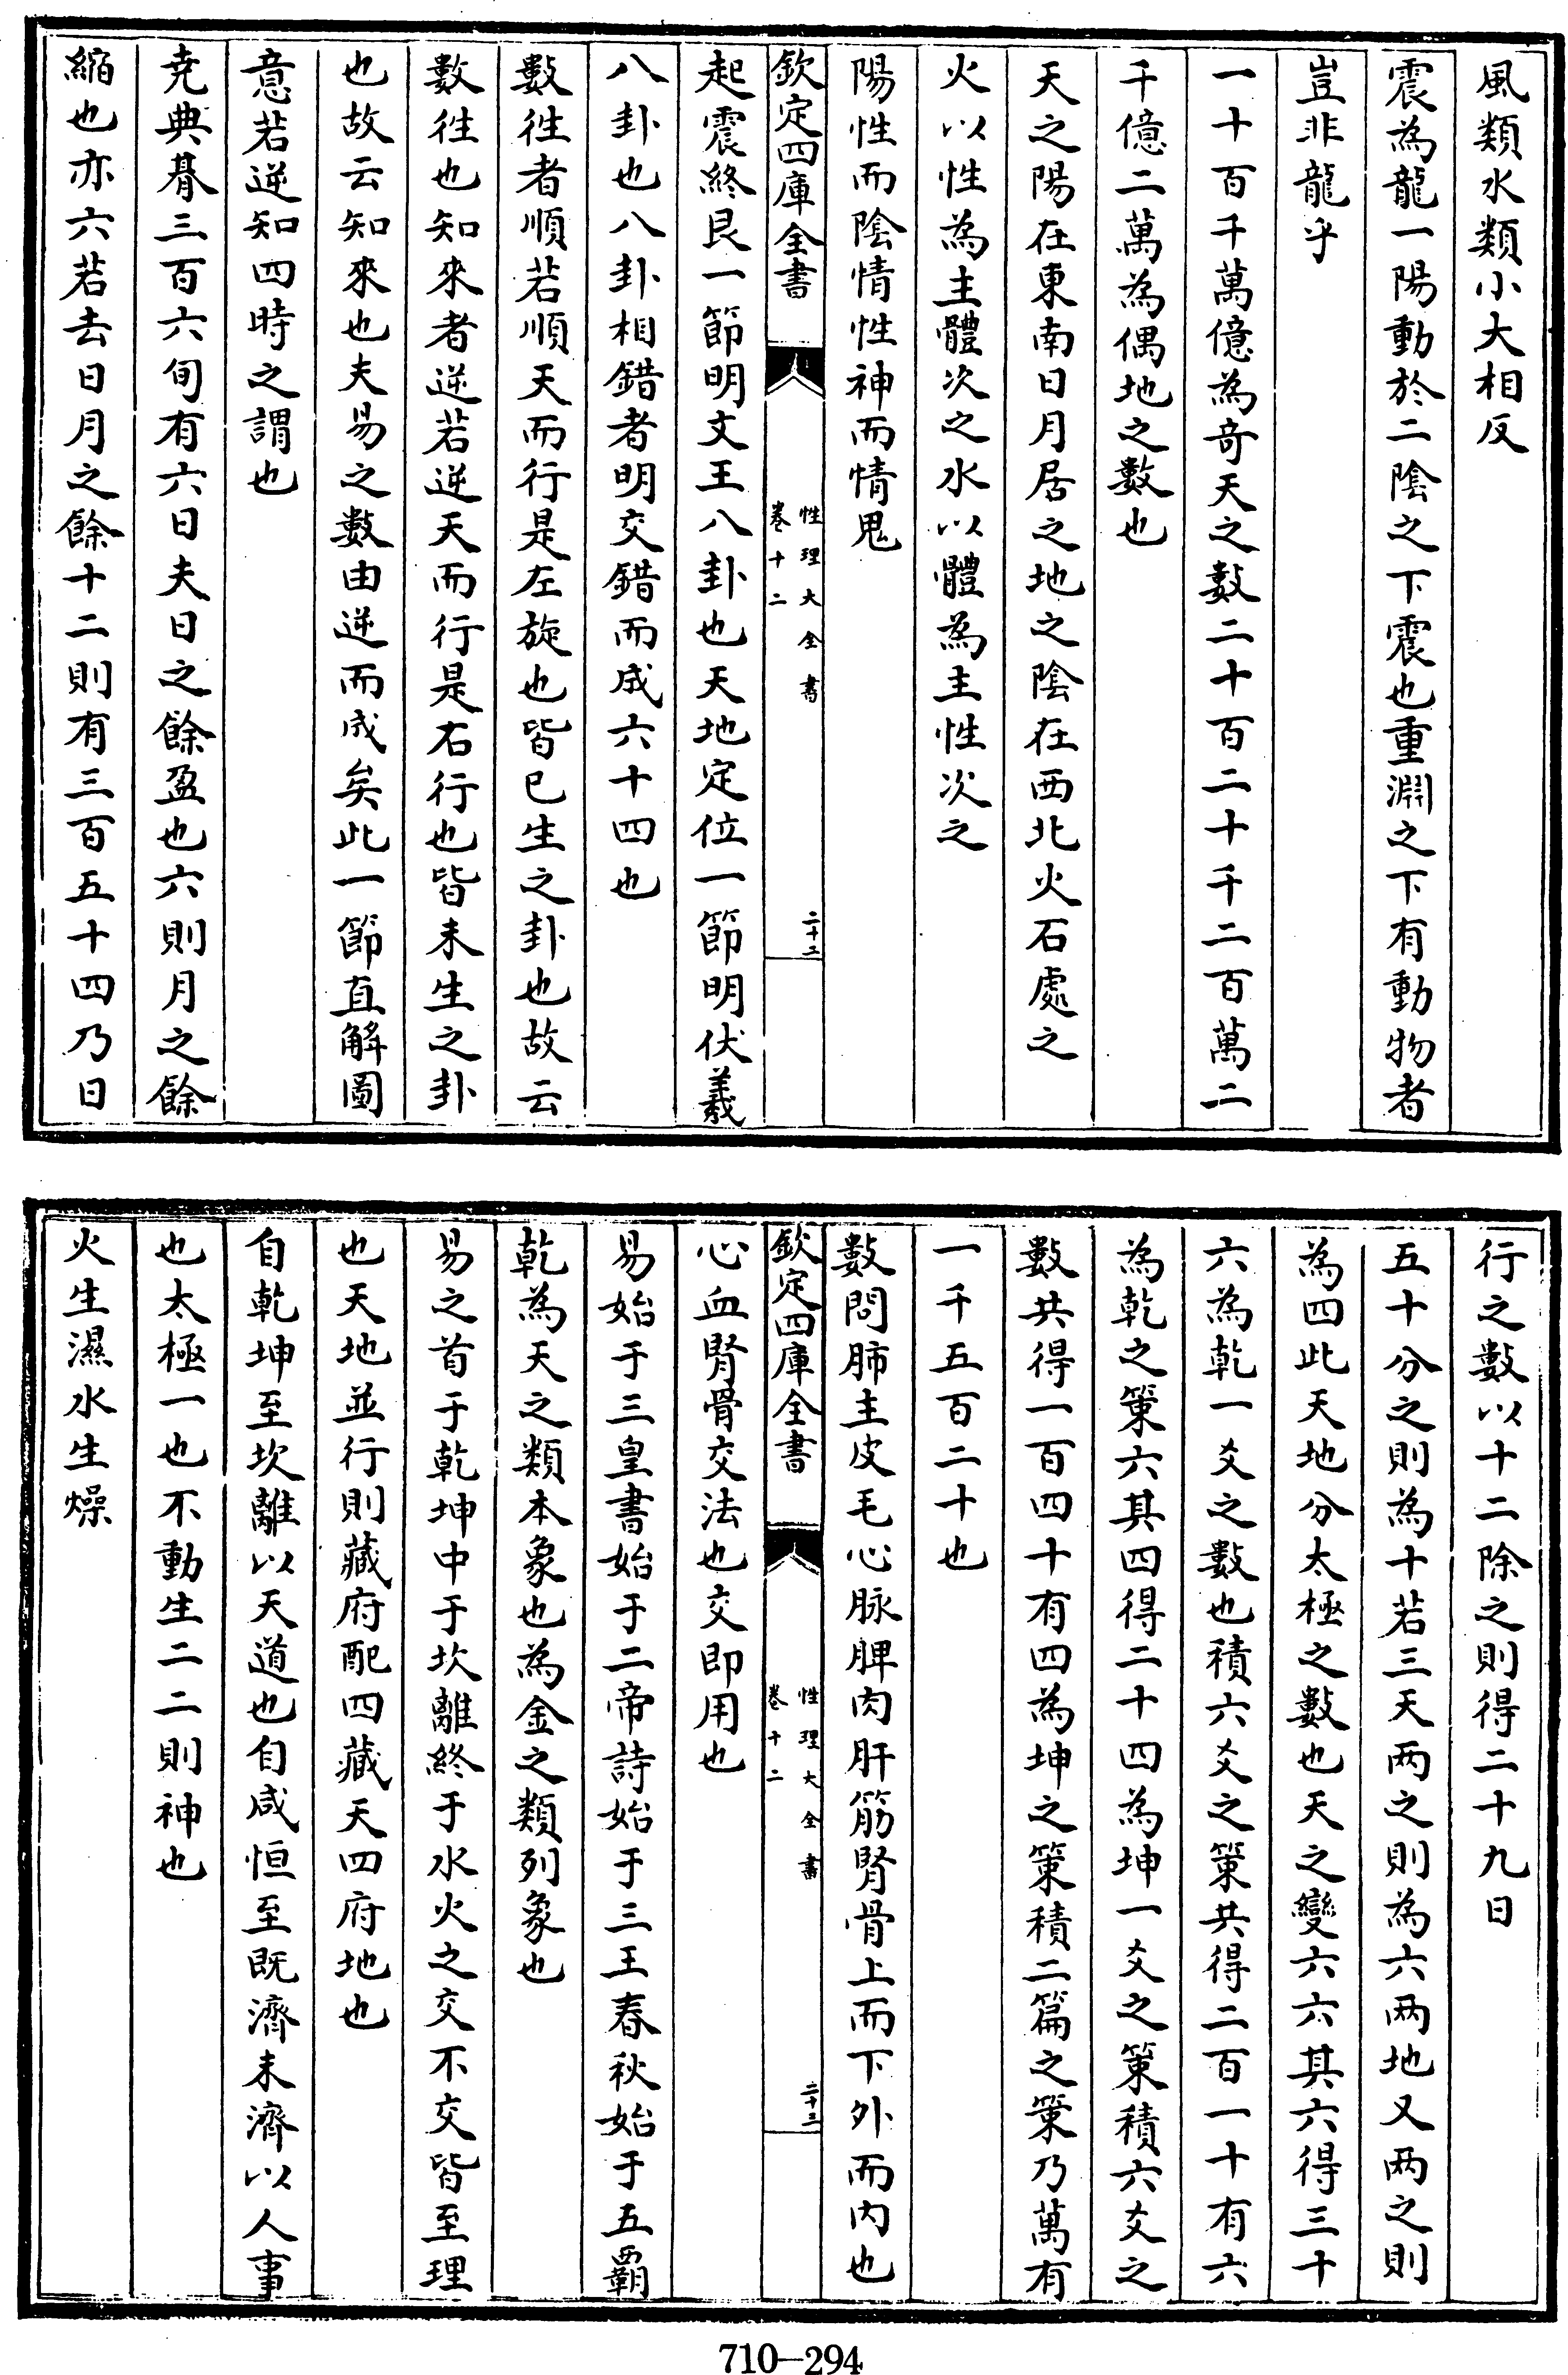 風類水類小大相反
震為龍一陽動於二陰之下震也重淵之下有動物者
豈非龍乎
一十百千萬億為奇天之數二十百二十千二百萬二
千億二萬為偶地之數也
天之陽在東南日月居之地之陰在西北火石處之
火以性為主體次之水以體為主性次之
陽性而陰情性神而情鬼
欽定四庫全書
性理大全書
卷十二
二十二
起震終艮一節明文王八卦也天地定位一節明伏羲
八卦也八卦相錯者明交錯而成六十四也
數徃者順若順天而行是左旋也皆已生之卦也故云
數徃也知來者逆若逆天而行是右行也皆未生之卦
也故云知來也夫易之數由逆而成矣此一節直解圖
意若逆知四時之謂也
堯典朞三百六旬有六日夫日之餘盈也六則月之餘
縮也亦六若去日月之餘十二則有三百五十四乃日
行之數以十二除之則得二十九日
五十分之則為十若三天两之則為六两地又两之則
為四此天地分太極之數也天之變六六其六得三十
六為乾一爻之數也積六爻之䇿共得二百一十有六
為乾之䇿六其四得二十四為坤一爻之䇿積六爻之
數共得一百四十有四為坤之䇿積二篇之䇿乃萬有
一千五百二十也
數問肺主皮毛心脉脾肉肝筋腎骨上而下外而内也
欽定四庫全書
性理大全書
卷十二
二十三
心血腎骨交法也交即用也
易始于三皇書始于二帝詩始于三王春秋始于五覇
乾為天之類本象也為金之類列象也
易之首于乾坤中于坎離終于水火之交不交皆至理
也天地並行則藏府配四藏天四府地也
自乾坤至坎離以天道也自咸恒至既濟未濟以人事
也太極一也不動生二二則神也
火生濕水生燥
710—294